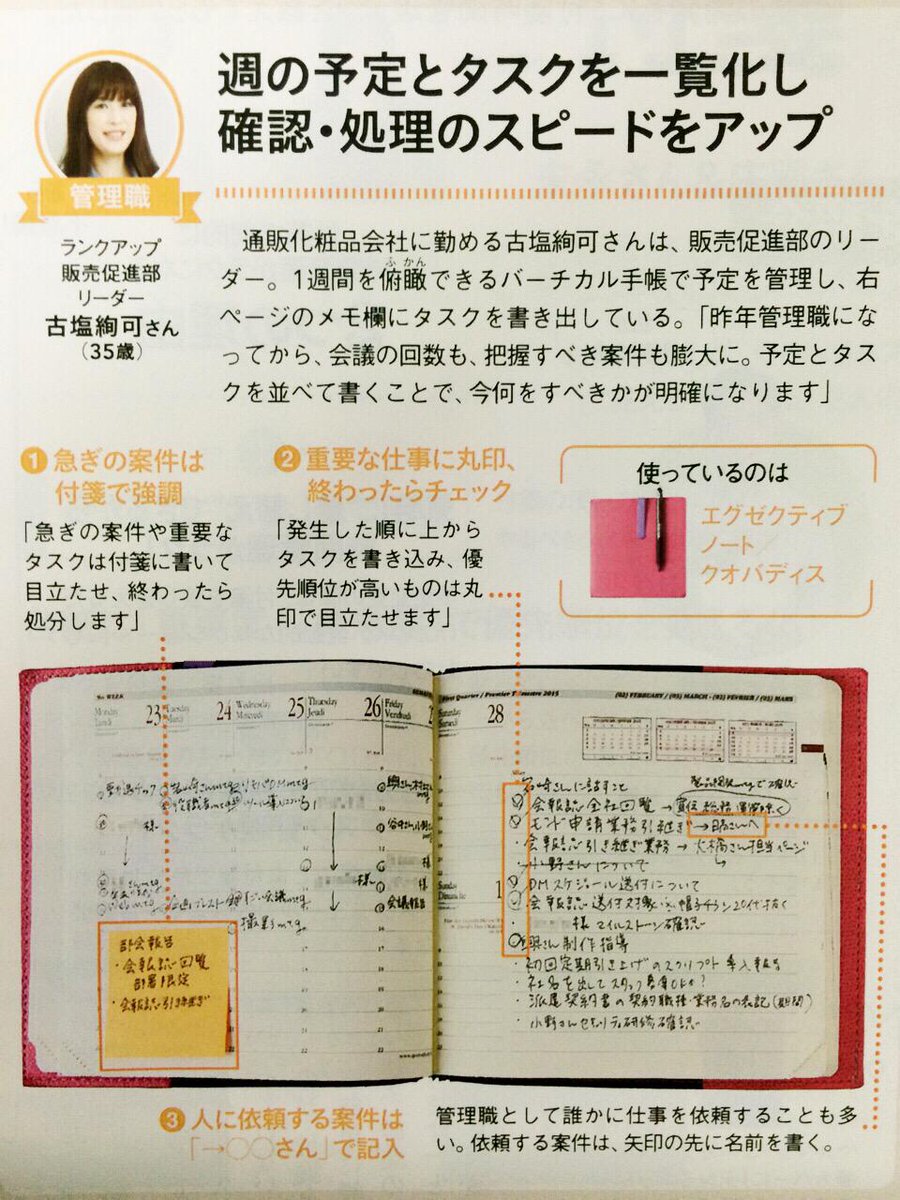 週の予定とタスクを一覧化し
確認・処理のスピードをアップ
管理職
ランクアップ
販売促進部
リーダー
古塩絢可さん
（35歳）
通販化粧品会社に勤める古塩絢可さんは、販売促進部のリー
ダー。1週間を俯瞰できるバーチカル手帳で予定を管理し、右
ふ かん
ページのメモ欄にタスクを書き出している。「昨年管理職にな
ってから、会議の回数も、把握すべき案件も膨大に。予定とタス
クを並べて書くことで、今何をすべきかが明確になります」
1 急ぎの案件は
付箋で強調
「急ぎの案件や重要な
タスクは付箋に書いて
目立たせ、終わったら
処分します」
2 重要な仕事に丸印、
終わったらチェック
「発生した順に上から
タスクを書き込み、優
先順位が高いものは丸
印で目立たせます」
使っているのは
エグゼクティブ
ノート
クオバディス
Monday
23 Tuesday
24 Wednesday
25 Thursday
Jeudi
26 Friday
Vendredi
Saturday
28
First Quarter / Premier Trimestre 2015
(02) FEBRUARY / (03) MARCH - (02) FÉVRIER / (03) MARS
Sunday
Dimanche
1
会報誌全社回覧
モンド申請業務引継ぎ
・会報誌引き継ぎ業務 → 大橋さん担当ページ
小野さんについて
DMスケジュール送付について
様 マイルストーン確認
奥さん制作指導
・初回定期引き上げのスクリプト導入報告
・小野さんセキュリティ研修確認
会議報告
部会報告
・会報誌回覧
部署限定
・会報誌引き継ぎ
3 人に依頼する案件は
「→○○さん」で記入
管理職として誰かに仕事を依頼することも多
い。依頼する案件は、矢印の先に名前を書く。